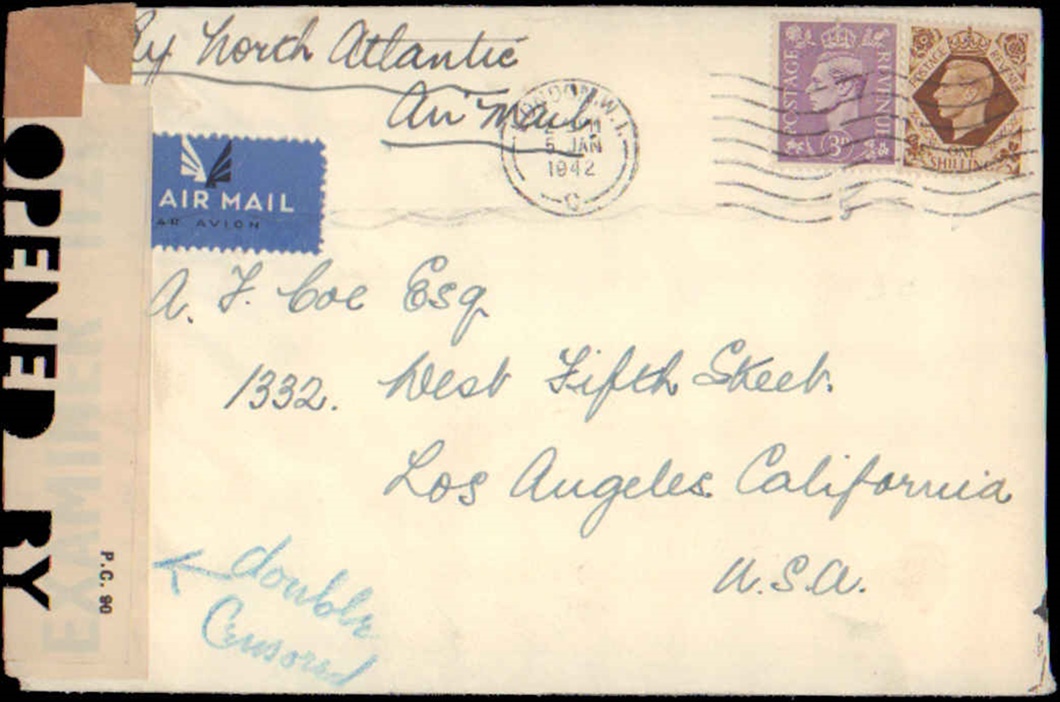 By North Atlantic
Air Mail
LONDON. W.1.
5 JAN
1942
C
POSTAGE REVENUE
3D
POSTAGE REVENUE
SHILLING
AIR MAIL
PAR AVION
A. F. Coe Esq
1332. West Fifth Street.
Los Angeles. California
U.S.A.
double
Censored
OPENED BY
EXAMINER
P.C. 90